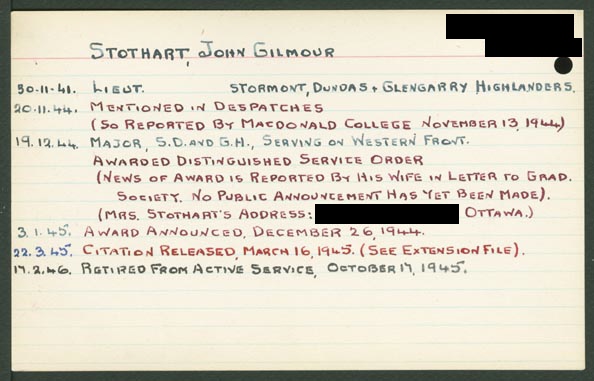 STOTHART, JOHN GILMOUR
30-11-41. LIEUT. STORMONT, DUNDAS + GLENGARRY HIGHLANDERS.
20.11.44. MENTIONED IN DESPATCHES
(SO REPORTED BY MACDONALD COLLEGE NOVEMBER 13, 1944)
19.12.44. MAJOR, S.D. AND G.H., SERVING ON WESTERN FRONT.
AWARDED DISTINGUISHED SERVICE ORDER
(NEWS OF AWARD IS REPORTED BY HIS WIFE IN LETTER TO GRAD.
SOCIETY. NO PUBLIC ANNOUNCEMENT HAS YET BEEN MADE).
(MRS. STOTHART'S ADDRESS: OTTAWA.)
3.1.45. AWARD ANNOUNCED, DECEMBER 26, 1944.
22.3.45. CITATION RELEASED, MARCH 16, 1945. (SEE EXTENSION FILE).
17.2.46. RETIRED FROM ACTIVE SERVICE, OCTOBER 17, 1945.